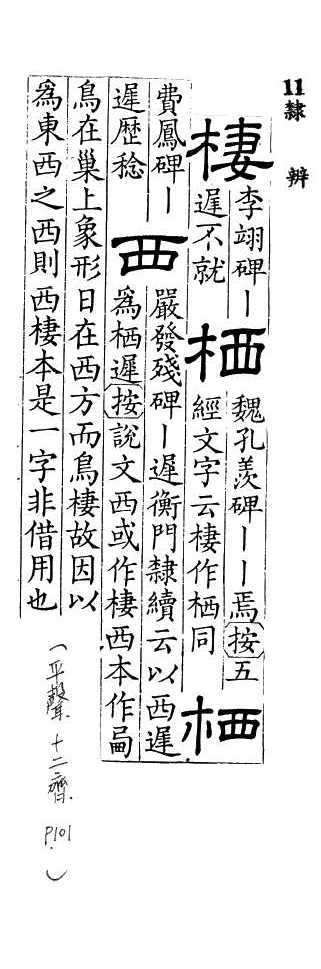 11隸 辨
棲 李翊碑丨
遲不就
栖 魏孔羨碑丨丨焉按五
經文字云棲作栖同
栖
費鳳碑丨
遲歴稔
西 嚴發殘碑丨遲衡門隸續云以西遲
爲栖遲按說文西或作棲西本作
鳥在巢上象形日在西方而鳥棲故因以
爲東西之西則西棲本是一字非借用也
(平聲 十二齊 P101)